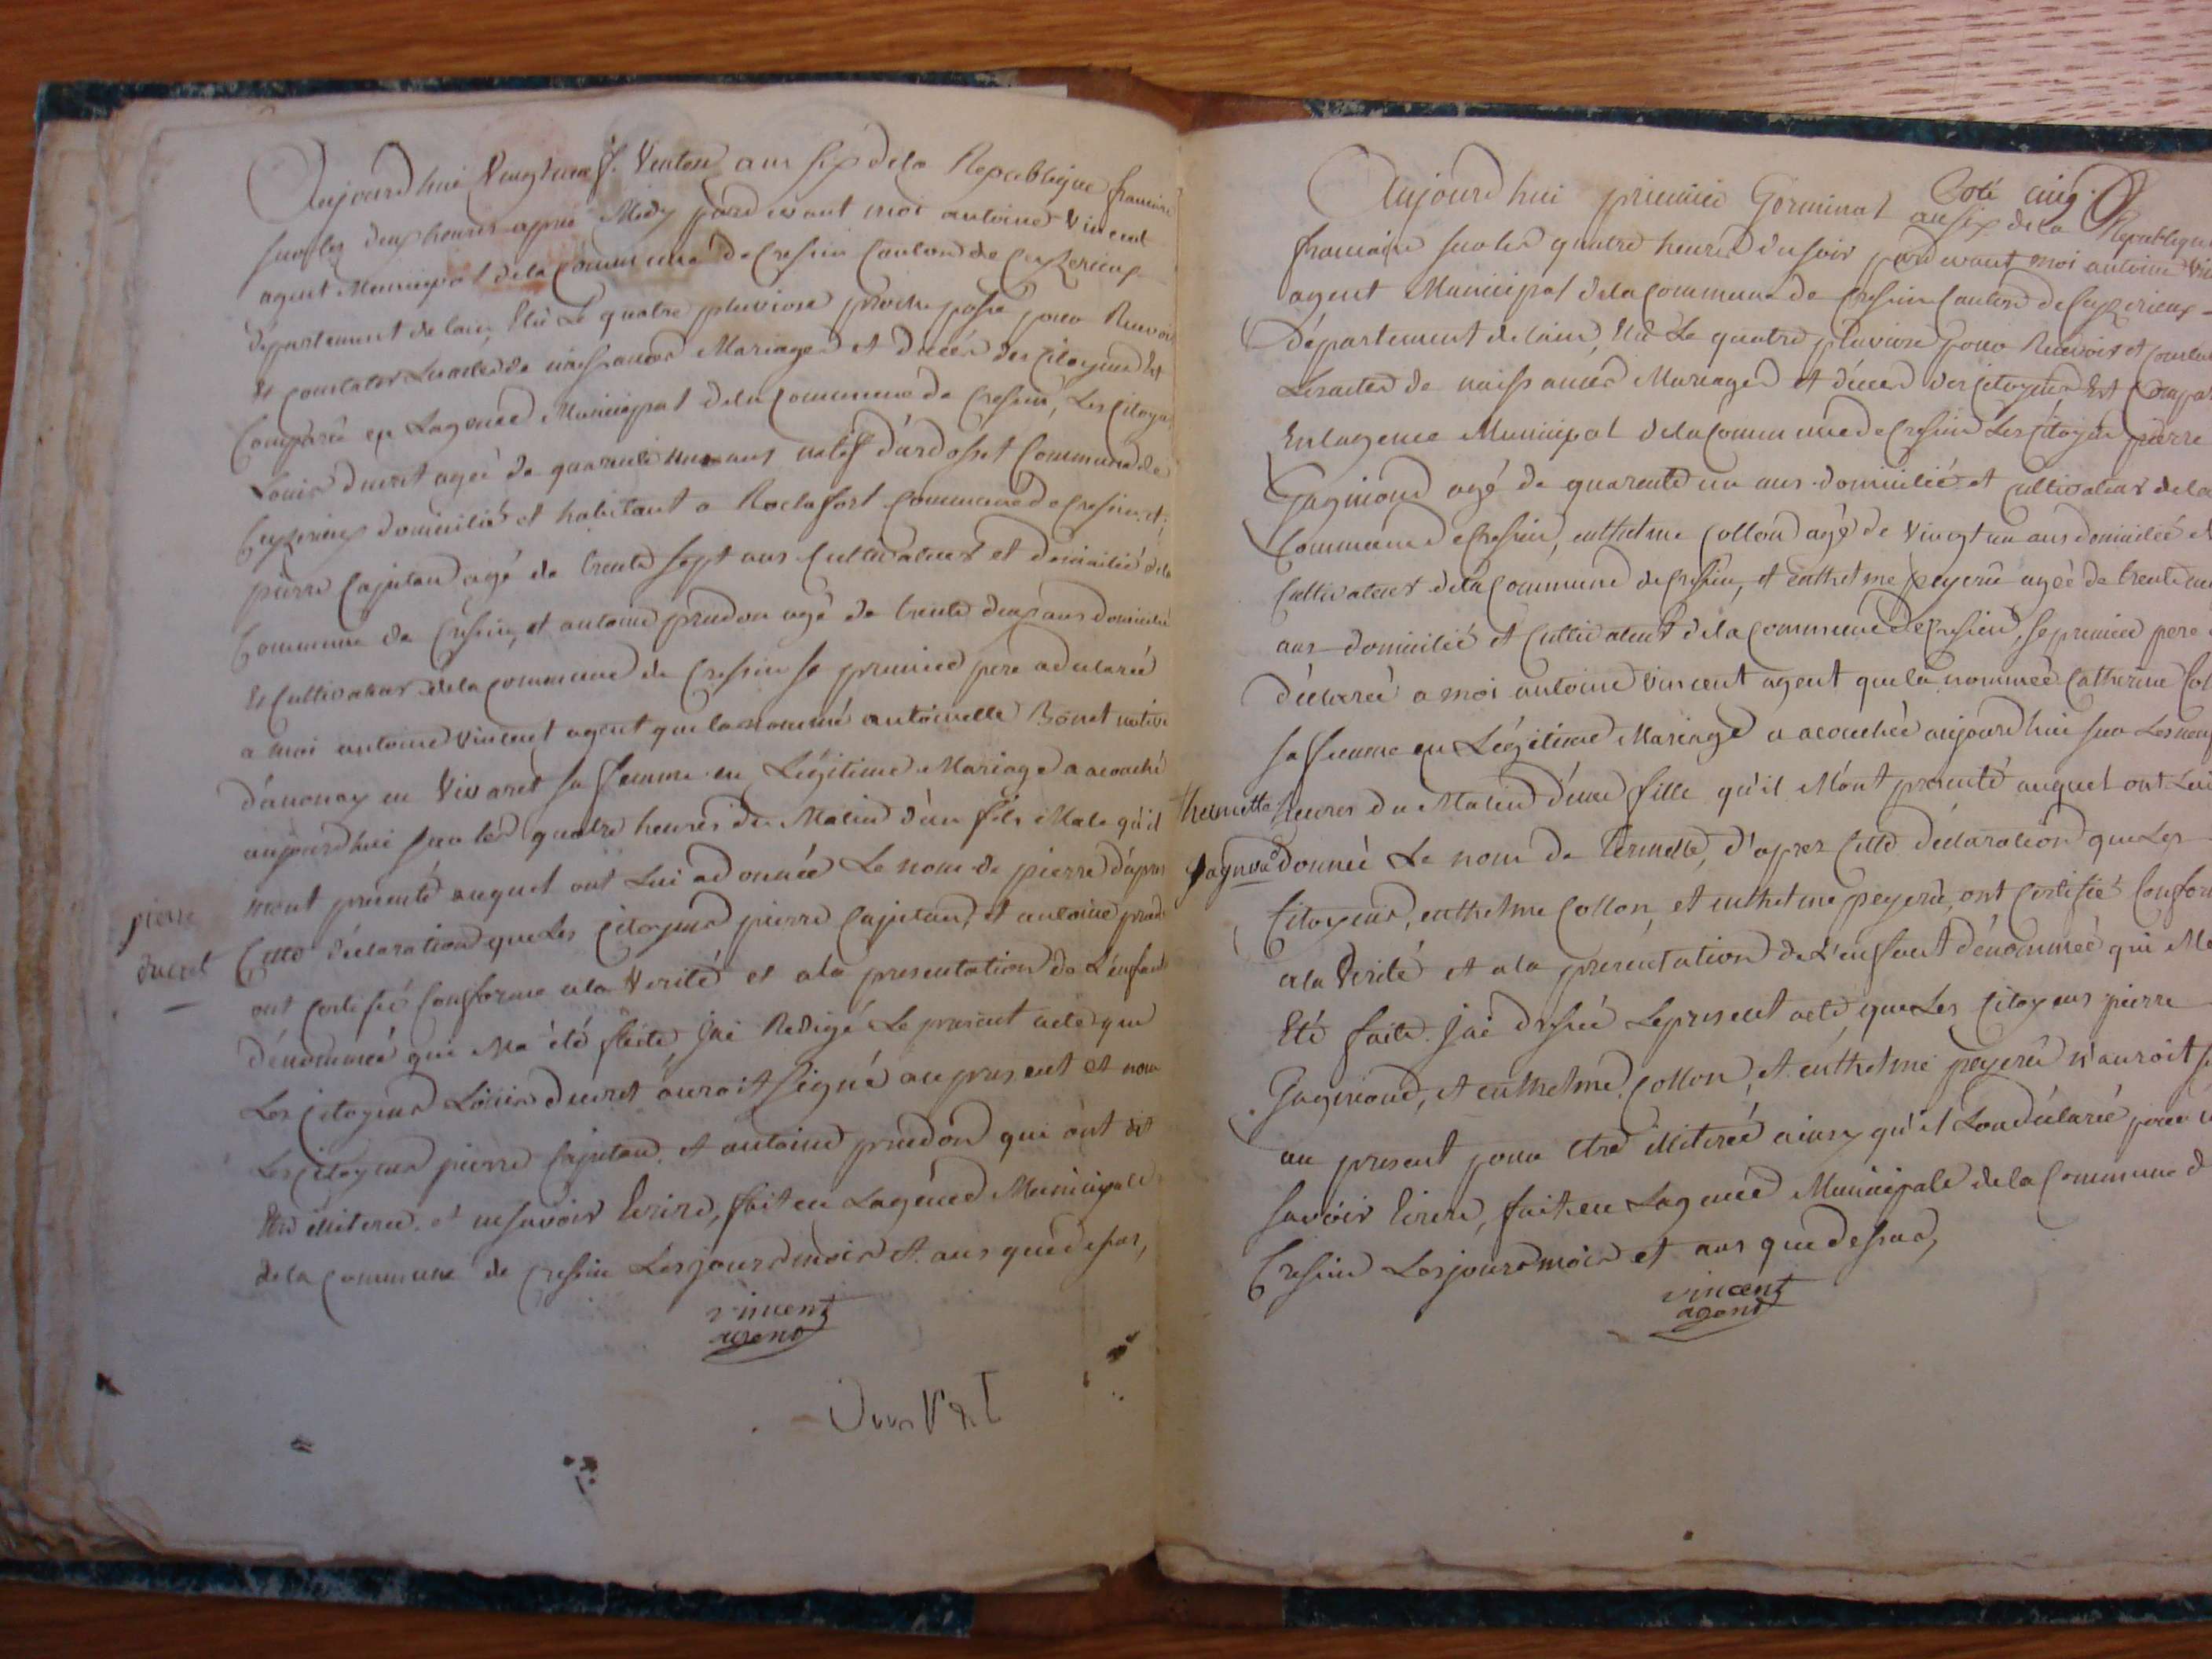 Aujourd hui Vingt neuf Ventose ans six dela Republique francaise
sur les deux heures apres Midy pard evant moi antoine Vincent
agent Municipal dela Commune de Cressin Canton de Ceyzerieux
département de lain, Elu Le quatre pluviose proche passé pour Recevoir
et constater Les actes de naissances Mariages et décés des Citoyens Est
Comparu en Lagence Municipal dela Commune de Cressin, Les Citoyens
Louis ducret ageé de quarante ans natif d'ardosset Commune de
Ceyzerieux domicilié et habitant a Rochefort Commune de Cressin, et
pierre Capitan agé de trente sept ans Cultivateur et domicilié dela
Commune de Cressin, et antoine prudon agé de trente deux ans domicilié
et Cultivateur dela Commune de Cressin le premier pere a declareé
a moi antoine Vincent agent que la nommé antoinette Bonet native
d'anonay en Vivaret sa femme en Légitime Mariage a acouché
aujourd hui sur les quatre heures du Matin d'un fils Male qu'il
mont présenté auquel ont Lui a donnée Le nom de pierre d'apres
Cette déclaration que Les Citoyens pierre Capitan, et antoine prudon
ont Certifié Conforme ala Verité et ala presentation de L'enfant
dénommeé qui Ma été faite, Jai Redigé Le present acte que
Les Citoyens Louis ducret auroit signé au present et non
Les Citoyens pierre Capitan, et antoine prudon qui ont dit
Etre illitereé, et ne savoir Ecrire, fait en Lagence Municipale
dela Commune de Cressin Les jours mois et ans que dessus,
pierre
ducret
vincent
agent
Coté cinq
Aujourd hui premier Germinal an six dela Republique
francaise sur les quatre heures du soir pard evant moi antoine
agent Municipal dela Commune de Cressin Canton de Ceyzerieux
Département de lain, Elu Le quatre pluviose pour Recevoir et
Les actes de naissances Mariages et décés des Citoyens Est
En lagence Municipal dela Commune de Cressin Les Citoyens pierre
Gagnioud agé de quarente un ans domicilié et Cultivateur dela
Commune de Cressin, enthelme Collon agé de Vingt un ans domicilié et
Cultivateur dela Commune de Cressin, et enthelme peyeru ageé de trente
ans domicilié et Cultivateur dela Commune de Cressin, le premier pere
déclareé a moi antoine Vincent agent que la nommeé Catherine
sa femme en Légitime Mariage a acouchée aujourd hui sur Les neuf
heures du Matin d'une fille qu'il Mont presenté auquel ont Lui
donneé Le nom de termette, d'apres Cette déclaration que Les
Citoyens, enthelme Collon, et enthelme peyeru, ont Certifié
ala Verité et ala presentation de L'enfant dénommeé qui
Eté faite. Jai dressée Le present acte, que Les Citoyens pierre
Gagnioud, et enthelme Collon, et enthelme peyeru n'auroit
au present pour etre illitereé ainsy qu'il Lon déclaré pour
savoir Ecrire, fait en Lagence Municipale dela Commune
Cressin Les jours mois et ans que dessus,
vincent
agent